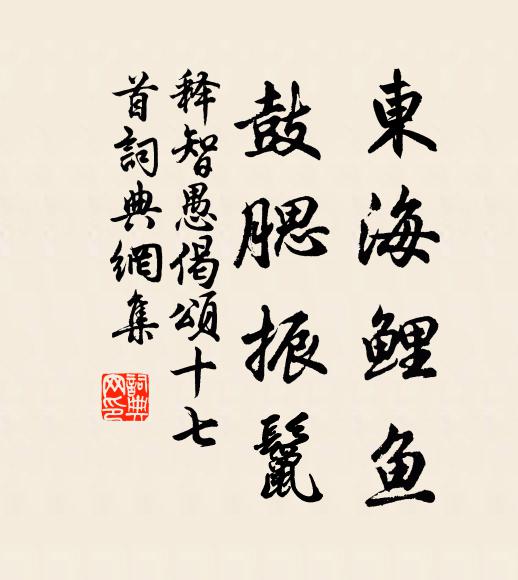 東海鲤魚
鼓腮振鬣
释智愚偈頌十七
首詞典網集
詞典
网印